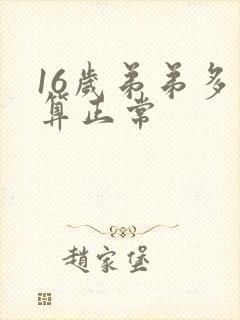 16歲弟弟多
算正常
趙家堡